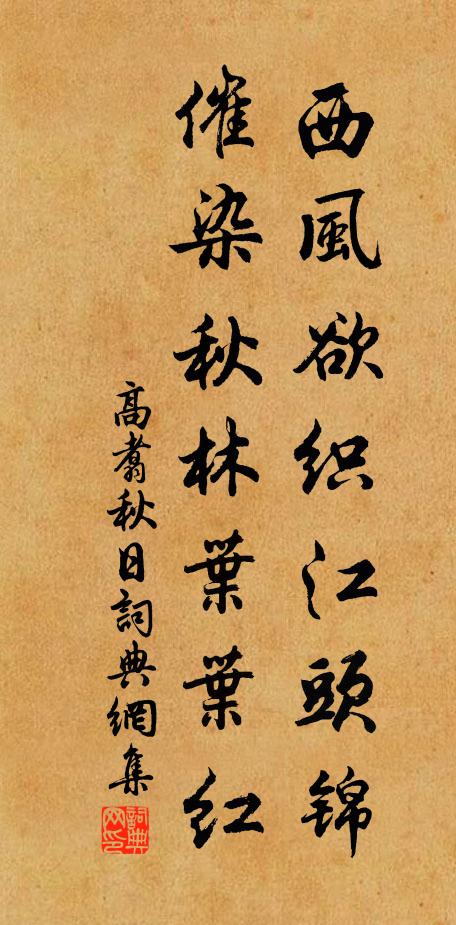 西風欲织江頭锦
催染秋林葉葉红
高翥秋日詞典網集
詞典网印